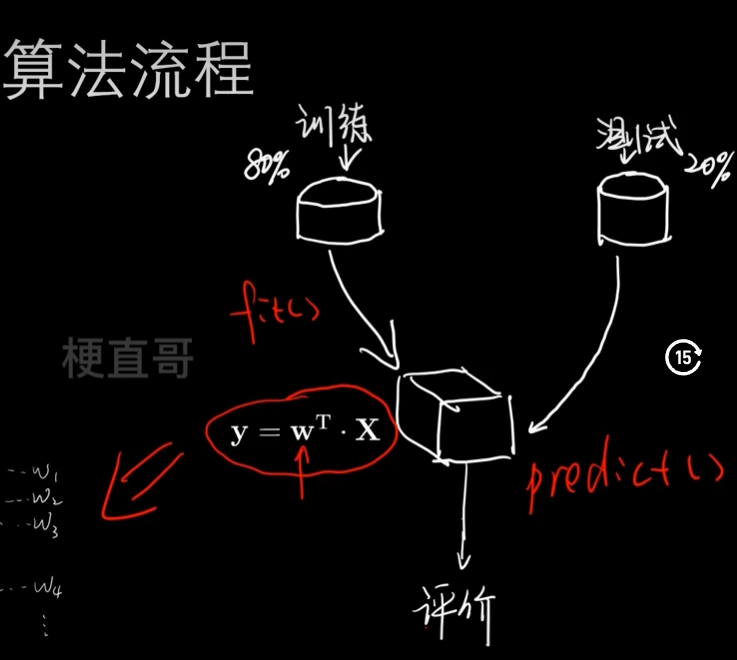 算法流程
训练
80%
测试
20%
fit()
梗直哥
15
y = wᵀ · X
predict()
w₁
w₂
w₃
w₄
评价